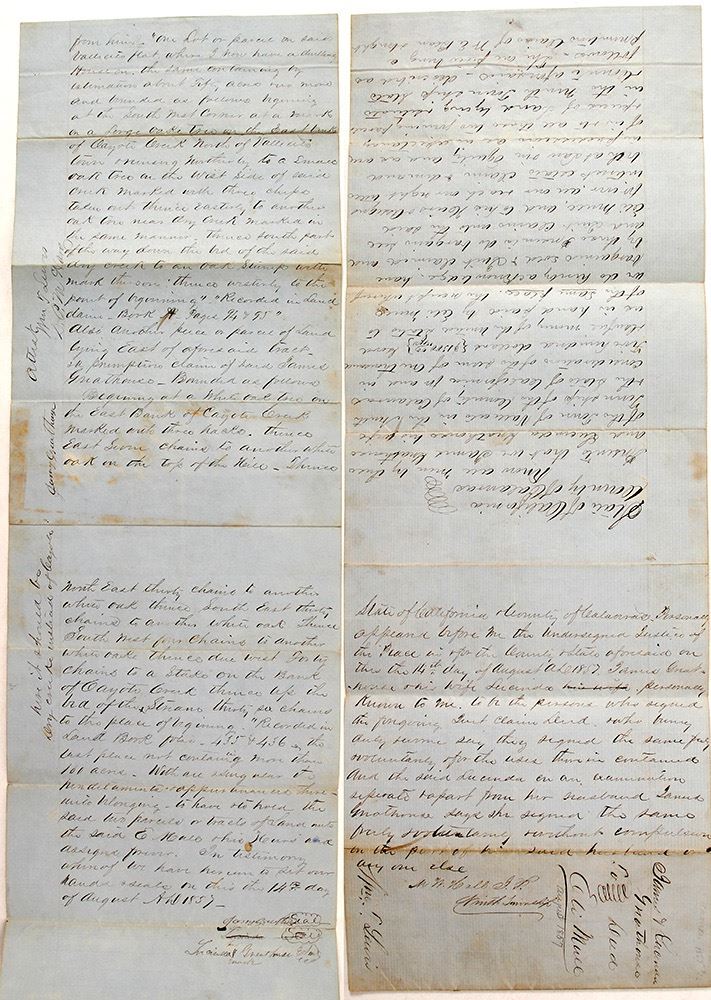 State of California
County of Calaveras
Know all men by these
presents that we James Greathouse
and Lucinda Greathouse his wife
of the Town of Vallecito in the Ninth
Town ship of the County of Calaveras
& the State of California for and in
Consideration of the sum of one thousand
five hundred dollars lawful
money of the United States to
us in hand paid by Eli Mace
of the same place the receipt whereof
we do hereby acknowledge have
bargained sold & Quit claimed and
by these presents do bargain sell
and Quit claim unto the said
Eli Mace, and to his Heirs & Assigns
for ever, all our and each our right title
interest estate claim & demand
both at law and Equity and as well
in possession as in expectancy
of in or to all those two pieces
or parcels of Land lying & situate
in the Ninth Town ship State
& County aforesaid described as
follows
from him - "One Lot or parcel on said
Vallecito flat, where I now have a dwelling
House on, the same containing by
estimation about fifty acres more
and bounded as follows beginning
at the South West Corner at a mark
on a large oak tree on the East bank
of Cayote Creek North of Vallecito
town running Northerly to a
oak tree on the West side of said
Creek marked with three chips
taken out thence easterly to another
oak tree near dry Creek marked in
the same manner thence south part
of the way down the bed of the said
dry creek to an Oak Stump with
mark thereon thence westerly to the
point of beginning" "Recorded in Land
claims Book A Pages 94 & 95"
Also Another piece or parcel of Land
lying East of aforesaid tract
a preemption claim of said James
Greathouse - Bounded as follows
Beginning at a White oak tree on
the East Bank of Cayote Creek
marked with three hacks. thence
East Seven chains to another White
oak on the top of the Hill - Thence
Attest
Wm P Lewis
James Greathouse
here it should be
Dry creek instead of Cayote
North East thirty chains to another
white oak thence South East thirty
chains to another white oak Thence
South West four Chains to another
white oak thence due west Forty
chains to a Stake on the Bank
of Cayote Creek thence up the
bed of the Stream thirty six chains
to the place of beginning. "Recorded in
Land Book folio - 435 & 436 - the
last place not containing more than
160 acres. With all and singular the
hereditaments & appurtenances there
unto belonging - to have & to hold the
said two parcels or tracts of Land unto
the said E Mace & his Heirs and
assigns forever. In testimony
whereof we have hereunto set our
hands & seals on this the 14th day
of August A.D 1857
James Greathouse Seal
Lucinda Greathouse Seal
mark
State of California & County of Calaveras. Personally
appeared before me the undersigned Justice of
the Peace in & for the County & State aforesaid on
this the 14th day of August A.D 1857 James Great-
house & his Wife Lucinda his wife, personally
Known to me, to be the persons who signed
the foregoing Quit claim Deed - who being
duly sworne say they signed the same freely
& voluntary & for the uses therein contained
And the said Lucinda on an examination
seperate & apart from her husband James
Greathouse says she signed the same
freely & voluntary without compulsion
on the part of her said husband or
any one else
M. W. Hall J. P.
Ninth Township
Wm P. Lewis
James & Lucinda
Greathouse
To Deed
Eli Mace
August 1857